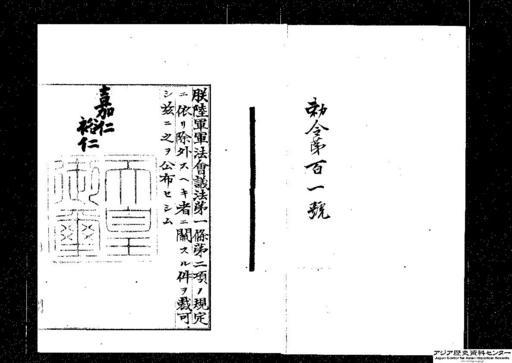 勅令第百一號
朕陸軍軍法會議法第一條第二項ノ規定
ニ依リ除外スヘキ者ニ關スル件ヲ裁可
シ茲ニ之ヲ公布セシム
嘉仁
裕仁
天皇
御璽
アジア歴史資料センター
Japan Center for Asian Historical Records